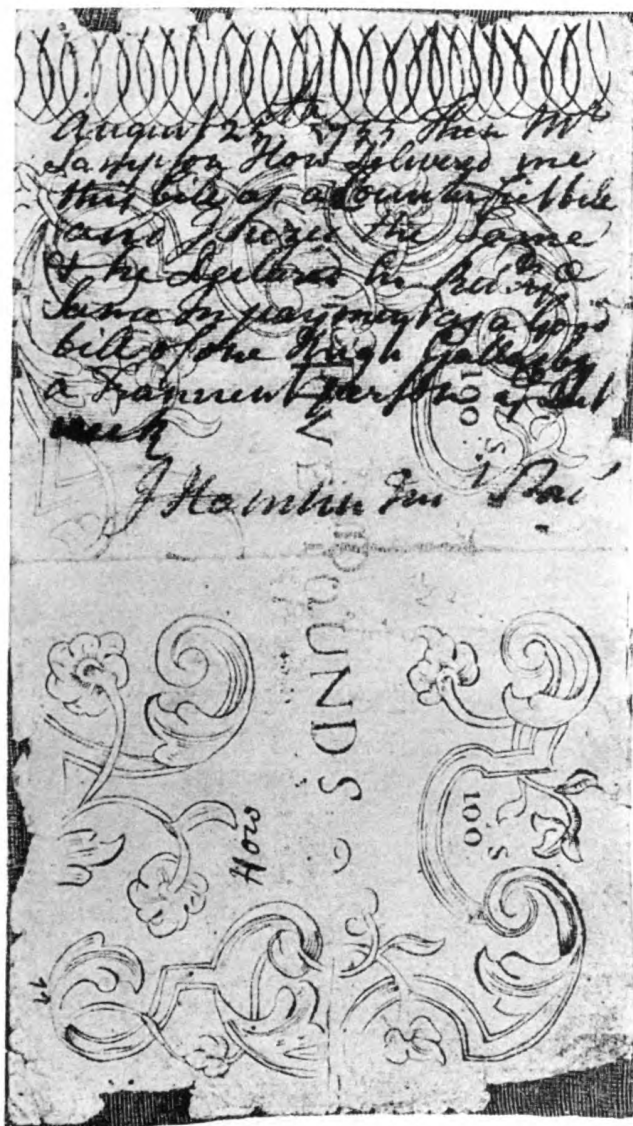 August 25th 1735 then Mr
Sampson How delivered me
this bill as a Counterfiet bill
and I seized the Same
& he declared he recd ye
Same in payment as a good
bill of one Hugh Gallasby
a transient person
week
J Hamlin Jus Pac
FIVE POUNDS
100 S
100 S
How